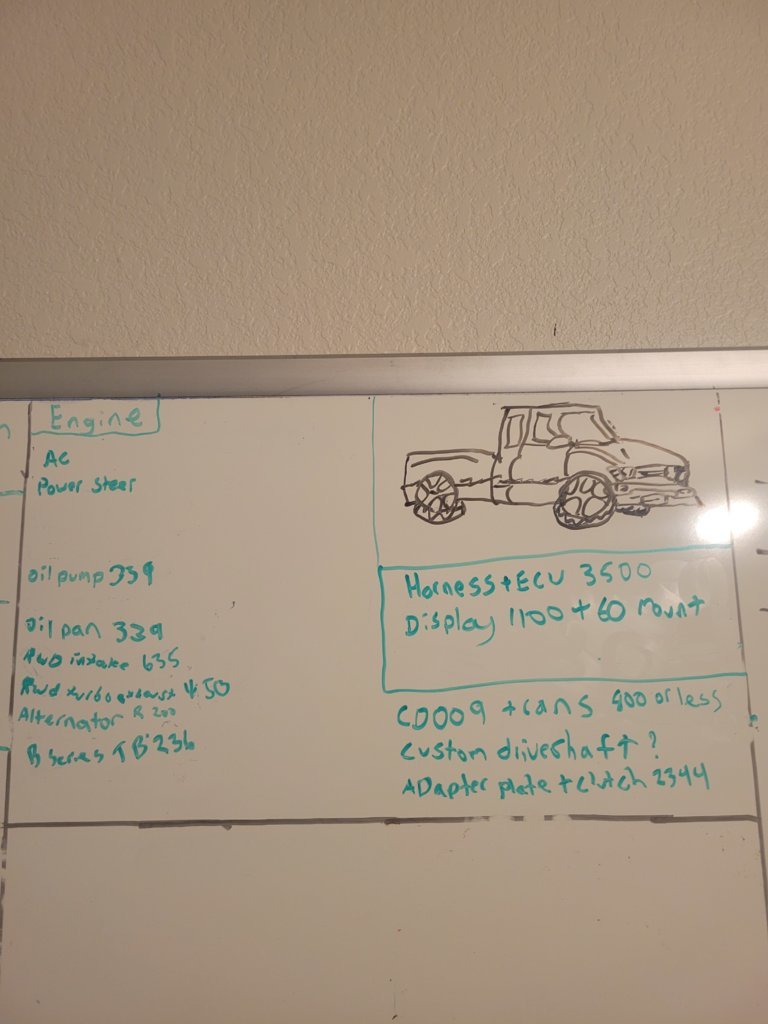 Engine
AC
Power Steer
oil pump 339
oil pan 339
RWD intake 635
Rwd turbo exhaust 450
Alternator R 200
B series TB 236
Harness + ECU 3500
Display 1100 + 60 mount
CD009 + trans 800 or less
Custom driveshaft ?
ADapter plate + Clutch 2344